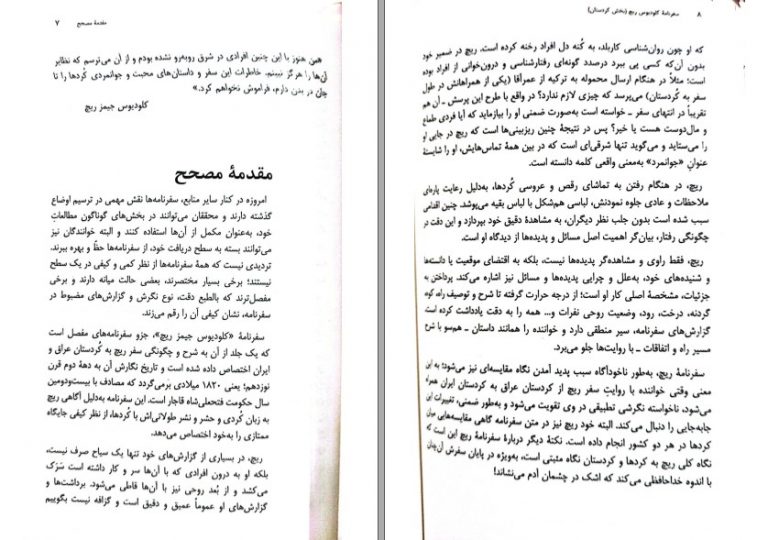 مقدمهٔ مصحح ۷
همن هنوز با این چنین افرادی در شرق روبه‌رو نشده بودم و از آن می‌ترسم که نظایر
آن‌ها را هرگز نبینم. خاطرات این سفر و داستان‌های محبت و جوانمردی کُردها را تا
جان در بدن دارم، فراموش نخواهم کرد.»
کلودیوس جیمز ریچ
مقدمهٔ مصحح
امروزه در کنار سایر منابع، سفرنامه‌ها نقش مهمی در ترسیم اوضاع
گذشته دارند و محققان می‌توانند در بخش‌های گوناگون مطالعات
خود، به‌عنوان مکمل از آن‌ها استفاده کنند و البته خوانندگان نیز
می‌توانند بسته به سطح دریافت خود، از سفرنامه‌ها حظّ و بهره ببرند.
تردیدی نیست که همهٔ سفرنامه‌ها از نظر کمی و کیفی در یک سطح
نیستند؛ برخی بسیار مختصرند، بعضی حالت میانه دارند و برخی
مفصل‌ترند که بالطبع دقت، نوع نگرش و گزارش‌های مضبوط در
سفرنامه، نشان کیفی آن را رقم می‌زند.
سفرنامهٔ «کلودیوس جیمز ریچ»، جزو سفرنامه‌های مفصل است
که یک جلد از آن به شرح و چگونگی سفر ریچ به کُردستان عراق و
ایران اختصاص داده شده است و تاریخ نگارش آن به دههٔ دوم قرن
نوزدهم؛ یعنی ۱۸۲۰ میلادی برمی‌گردد که مصادف با بیست‌ودومین
سال حکومت فتحعلی‌شاه قاجار است. این سفرنامه به‌دلیل آگاهی ریچ
به زبان کُردی و حشر و نشر طولانی‌اش با کُردها، از نظر کیفی جایگاه
ممتازی را به‌خود اختصاص می‌دهد.
ریچ، در بسیاری از گزارش‌های خود تنها یک سیاح صرف نیست،
بلکه او به درون افرادی که با آن‌ها سر و کار داشته است سَرَک
می‌کشد و از بُعد روحی نیز با آن‌ها قاطی می‌شود. برداشت‌ها و
گزارش‌های او عموماً عمیق و دقیق است و گزافه نیست بگوییم
۸ سفرنامهٔ کلودیوس ریچ (بخش کردستان)
که او چون روان‌شناسی کاربلد، به کُنه دل افراد رخنه کرده است. ریچ در ضمیر خود
بدون آن‌که کسی پی ببرد درصدد گونه‌ای رفتارشناسی و درون‌خوانی از افراد بوده
است؛ مثلاً در هنگام ارسال محموله به ترکیه از عمرآقا (یکی از همراهانش در طول
سفر به کُردستان) می‌پرسد که چیزی لازم ندارد؟ در واقع با طرح این پرسش ـ آن هم
تقریباً در انتهای سفر ـ خواسته است به‌صورت ضمنی او را بیازماید که آیا فردی طماع
و مال‌دوست هست یا خیر؟ پس در نتیجهٔ چنین ریزبینی‌ها است که ریچ در جایی او
را می‌ستاید و می‌گوید تنها شرقی‌ای است که در بین همهٔ تماس‌هایش، او را شایستهٔ
عنوانِ «جوانمرد» به‌معنی واقعی کلمه دانسته است.
ریچ، در هنگام رفتن به تماشای رقص و عروسی کُردها، به‌دلیل رعایت پاره‌ای
ملاحظات و عادی جلوه نمودنش، لباسی هم‌شکل با لباس بقیه می‌پوشد. چنین اقدامی
سبب شده است بدون جلب نظر دیگران، به مشاهدهٔ دقیق خود بپردازد و این دقت در
چگونگی رفتار، بیان‌گر اهمیت اصل مسائل و پدیده‌ها از دیدگاه او است.
ریچ، فقط راوی و مشاهده‌گر پدیده‌ها نیست، بلکه به اقتضای موقعیت یا دانسته‌ها
و شنیده‌های خود، به‌علل و چرایی پدیده‌ها و مسائل نیز اشاره می‌کند. پرداختن به
جزئیات، مشخصهٔ اصلی کار او است؛ از درجه حرارت گرفته تا شرح و توصیف راه، کوه،
گردنه، درخت، رود، وضعیت روحی نفرات و... همه را به دقت یادداشت کرده است.
گزارش‌های سفرنامه، سیر منطقی دارد و خواننده را همانند داستان ـ هم‌سو با شرح
مسیر راه و اتفاقات ـ با روایت‌ها جلو می‌برد.
سفرنامهٔ ریچ، به‌طور ناخودآگاه سبب پدید آمدن نگاه مقایسه‌ای نیز می‌شود؛ به این
معنی وقتی خواننده با روایتِ سفر ریچ از کردستان عراق به کردستان ایران همراه
می‌شود، ناخواسته نگرشی تطبیقی در وی تقویت می‌شود و به‌طور ضمنی، تغییرات این
جابه‌جایی را دنبال می‌کند. البته خود ریچ نیز در متن سفرنامه گاهی مقایسه‌هایی میان
کردها در هر دو کشور انجام داده است. نکتهٔ دیگر دربارهٔ سفرنامهٔ ریچ این است که
نگاه کلی ریچ به کردها و کردستان نگاه مثبتی است، به‌ویژه در پایان سفرش آن‌چنان
با اندوه خداحافظی می‌کند که اشک در چشمان آدم می‌نشاند!